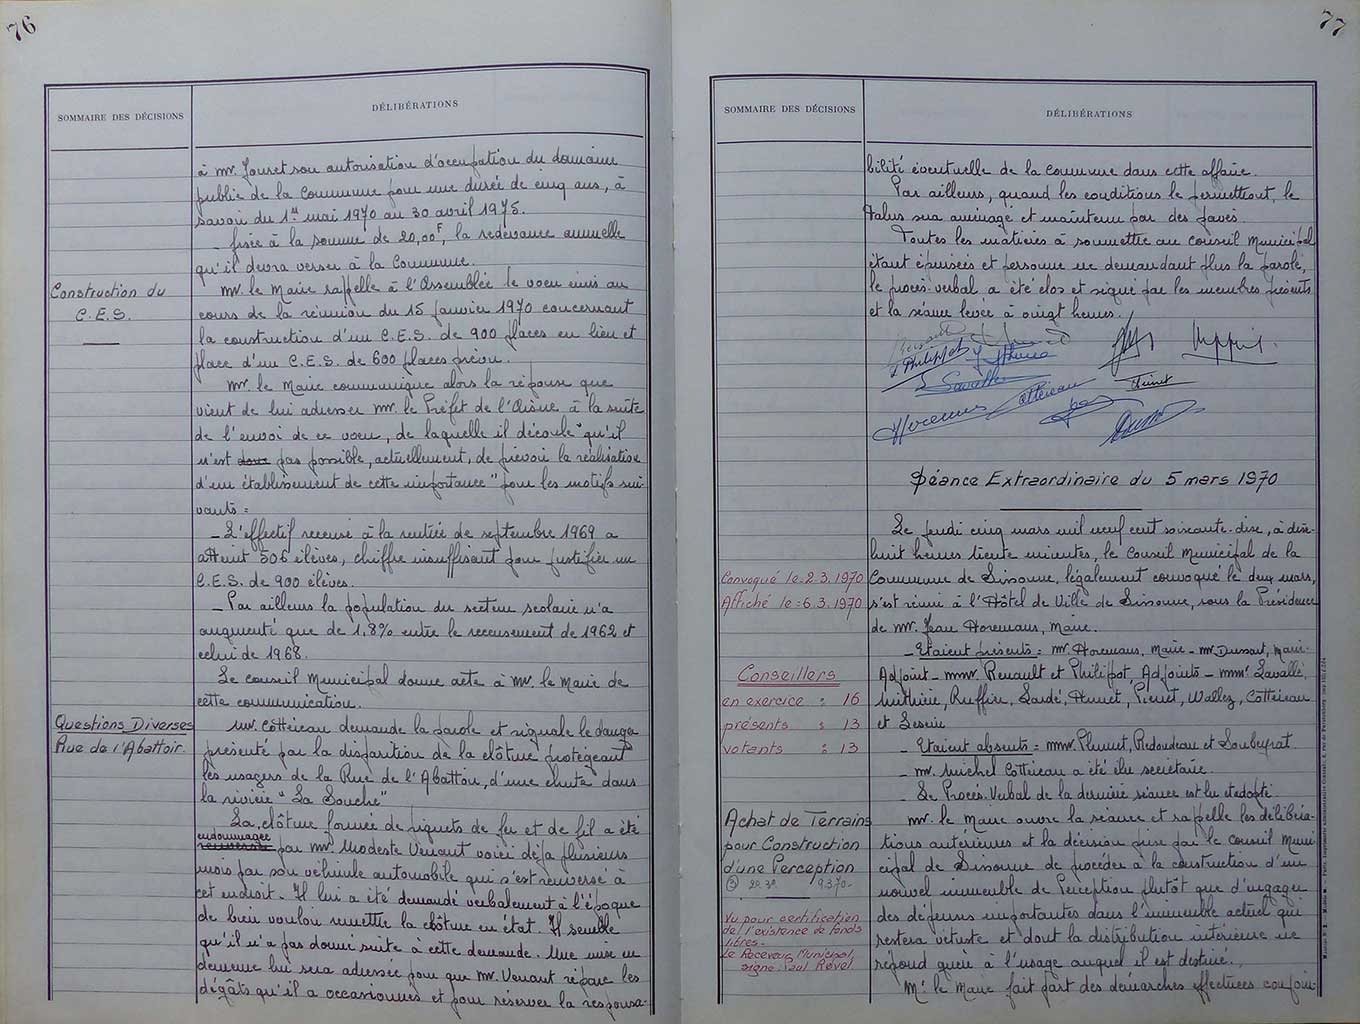 76
SOMMAIRE DES DÉCISIONS
DÉLIBÉRATIONS
à Mr. Jouret son autorisation d'occupation du domaine
public de la Commune pour une durée de cinq ans, à
savoir du 1er mai 1970 au 30 avril 1975.
_ fixée à la somme de 20,00F, la redevance annuelle
qu'il devra verser à la Commune.
Construction du
C.E.S.
Mr. le Maire rappelle à l'Assemblée le voeu émis au
cours de la réunion du 15 janvier 1970 concernant
la construction d'un C.E.S. de 900 places en lieu et
place d'un C.E.S. de 600 places prévu.
Mr. le Maire communique alors la réponse que
vient de lui adresser Mr. le Préfet de l'Aisne à la suite
de l'envoi de ce voeu, de laquelle il découle "qu'il
n'est donc pas possible, actuellement, de prévoir la réalisation
d'un établissement de cette importance" pour les motifs sui-
vants :
_ L'effectif recensé à la rentrée de septembre 1969 a
atteint 506 élèves, chiffre insuffisant pour justifier un
C.E.S. de 900 élèves.
_ Par ailleurs la population du secteur scolaire n'a
augmenté que de 1,8% entre le recensement de 1962 et
celui de 1968.
Le Conseil Municipal donne acte à Mr. le Maire de
cette communication.
Questions Diverses
Rue de l'Abattoir.
Mr. Cottereau demande la parole et signale le danger
présenté par la disparition de la clôture protégeant
les usagers de la Rue de l'Abattoir, d'une chute dans
la rivière "La Souche"
La clôture formée de piquets de fer et de fil a été
endommagée
renversée par Mr. Modeste Venant voici déjà plusieurs
mois par son véhicule automobile qui s'est renversé à
cet endroit. Il lui a été demandé verbalement à l'époque
de bien vouloir remettre la clôture en état. Il semble
qu'il n'a pas donné suite à cette demande. Une mise en
demeure lui sera adressée pour que Mr. Venant répare les
dégâts qu'il a occasionnés et pour réserver la responsa-
77
SOMMAIRE DES DÉCISIONS
DÉLIBÉRATIONS
bilité éventuelle de la Commune dans cette affaire.
Par ailleurs, quand les conditions le permettront, le
talus sera aménagé et maintenu par des pavés.
Toutes les matières à soumettre au Conseil Municipal
étant épuisées et personne ne demandant plus la parole,
le procès-verbal a été clos et signé par les membres présents
et la séance levée à vingt heures.
Philippot
Lavallée
Horemans
Cottereau
Séance Extraordinaire du 5 mars 1970
Le jeudi cinq mars mil neuf cent soixante-dix, à dix-
huit heures trente minutes, le Conseil Municipal de la
Convoqué le 2.3.1970
Commune de Sissonne, légalement convoqué le deux mars,
Affiché le : 6.3.1970
s'est réuni à l'Hôtel de Ville de Sissonne, sous la Présidence
de Mr. Jean Horemans, Maire.
_ Etaient présents : Mr. Horemans, Maire - Mr Dussart, Maire-
Conseillers
Adjoint - MMrs Renault et Philippot, Adjoints - MMrs Lavallée,
en exercice : 16
Ruffin, Hunet, Wallez, Cottereau
présents : 13
et
votants : 13
_ Etaient absents : MMrs Redoudeau et Soubeyrat.
_ Mr. Michel Cottereau a été élu secrétaire.
_ Le Procès-Verbal de la dernière séance est lu et adopté.
Achat de Terrains
pour Construction
d'une Perception
Mr. le Maire ouvre la séance et rappelle les délibéra-
tions antérieures et la décision prise par le Conseil Muni-
cipal de Sissonne de procéder à la construction d'un
nouvel immeuble de Perception plutôt que d'engager
des dépenses importantes dans l'immeuble actuel qui
restera vétuste et dont la distribution intérieure ne
répond guère à l'usage auquel il est destiné.
Vu pour certification
de l'existence de fonds
libres.
Le Receveur Municipal,
signé : Paul Revel.
Mr le Maire fait part des démarches effectuées conjoin-